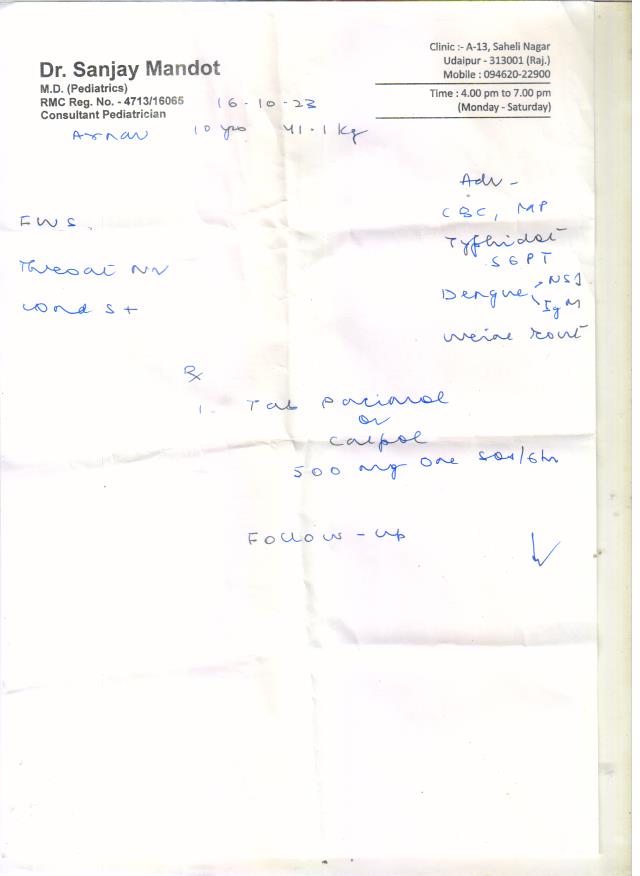 Dr. Sanjay Mandot
M.D. (Pediatrics)
RMC Reg. No. - 4713/16065
Consultant Pediatrician
Clinic :- A-13, Saheli Nagar
Udaipur - 313001 (Raj.)
Mobile : 094620-22900
Time : 4.00 pm to 7.00 pm
(Monday - Saturday)
16-10-23
Arnav 10 yrs 41.1 kg
FWS.
Throat
S+
Adv -
CBC, MP
Typhidot
SGPT
Dengue NS1
IgM
Urine rout
Rx
1. Tab Pacimol
or
Calpol
500 mg one sos/6hr
Follow-up